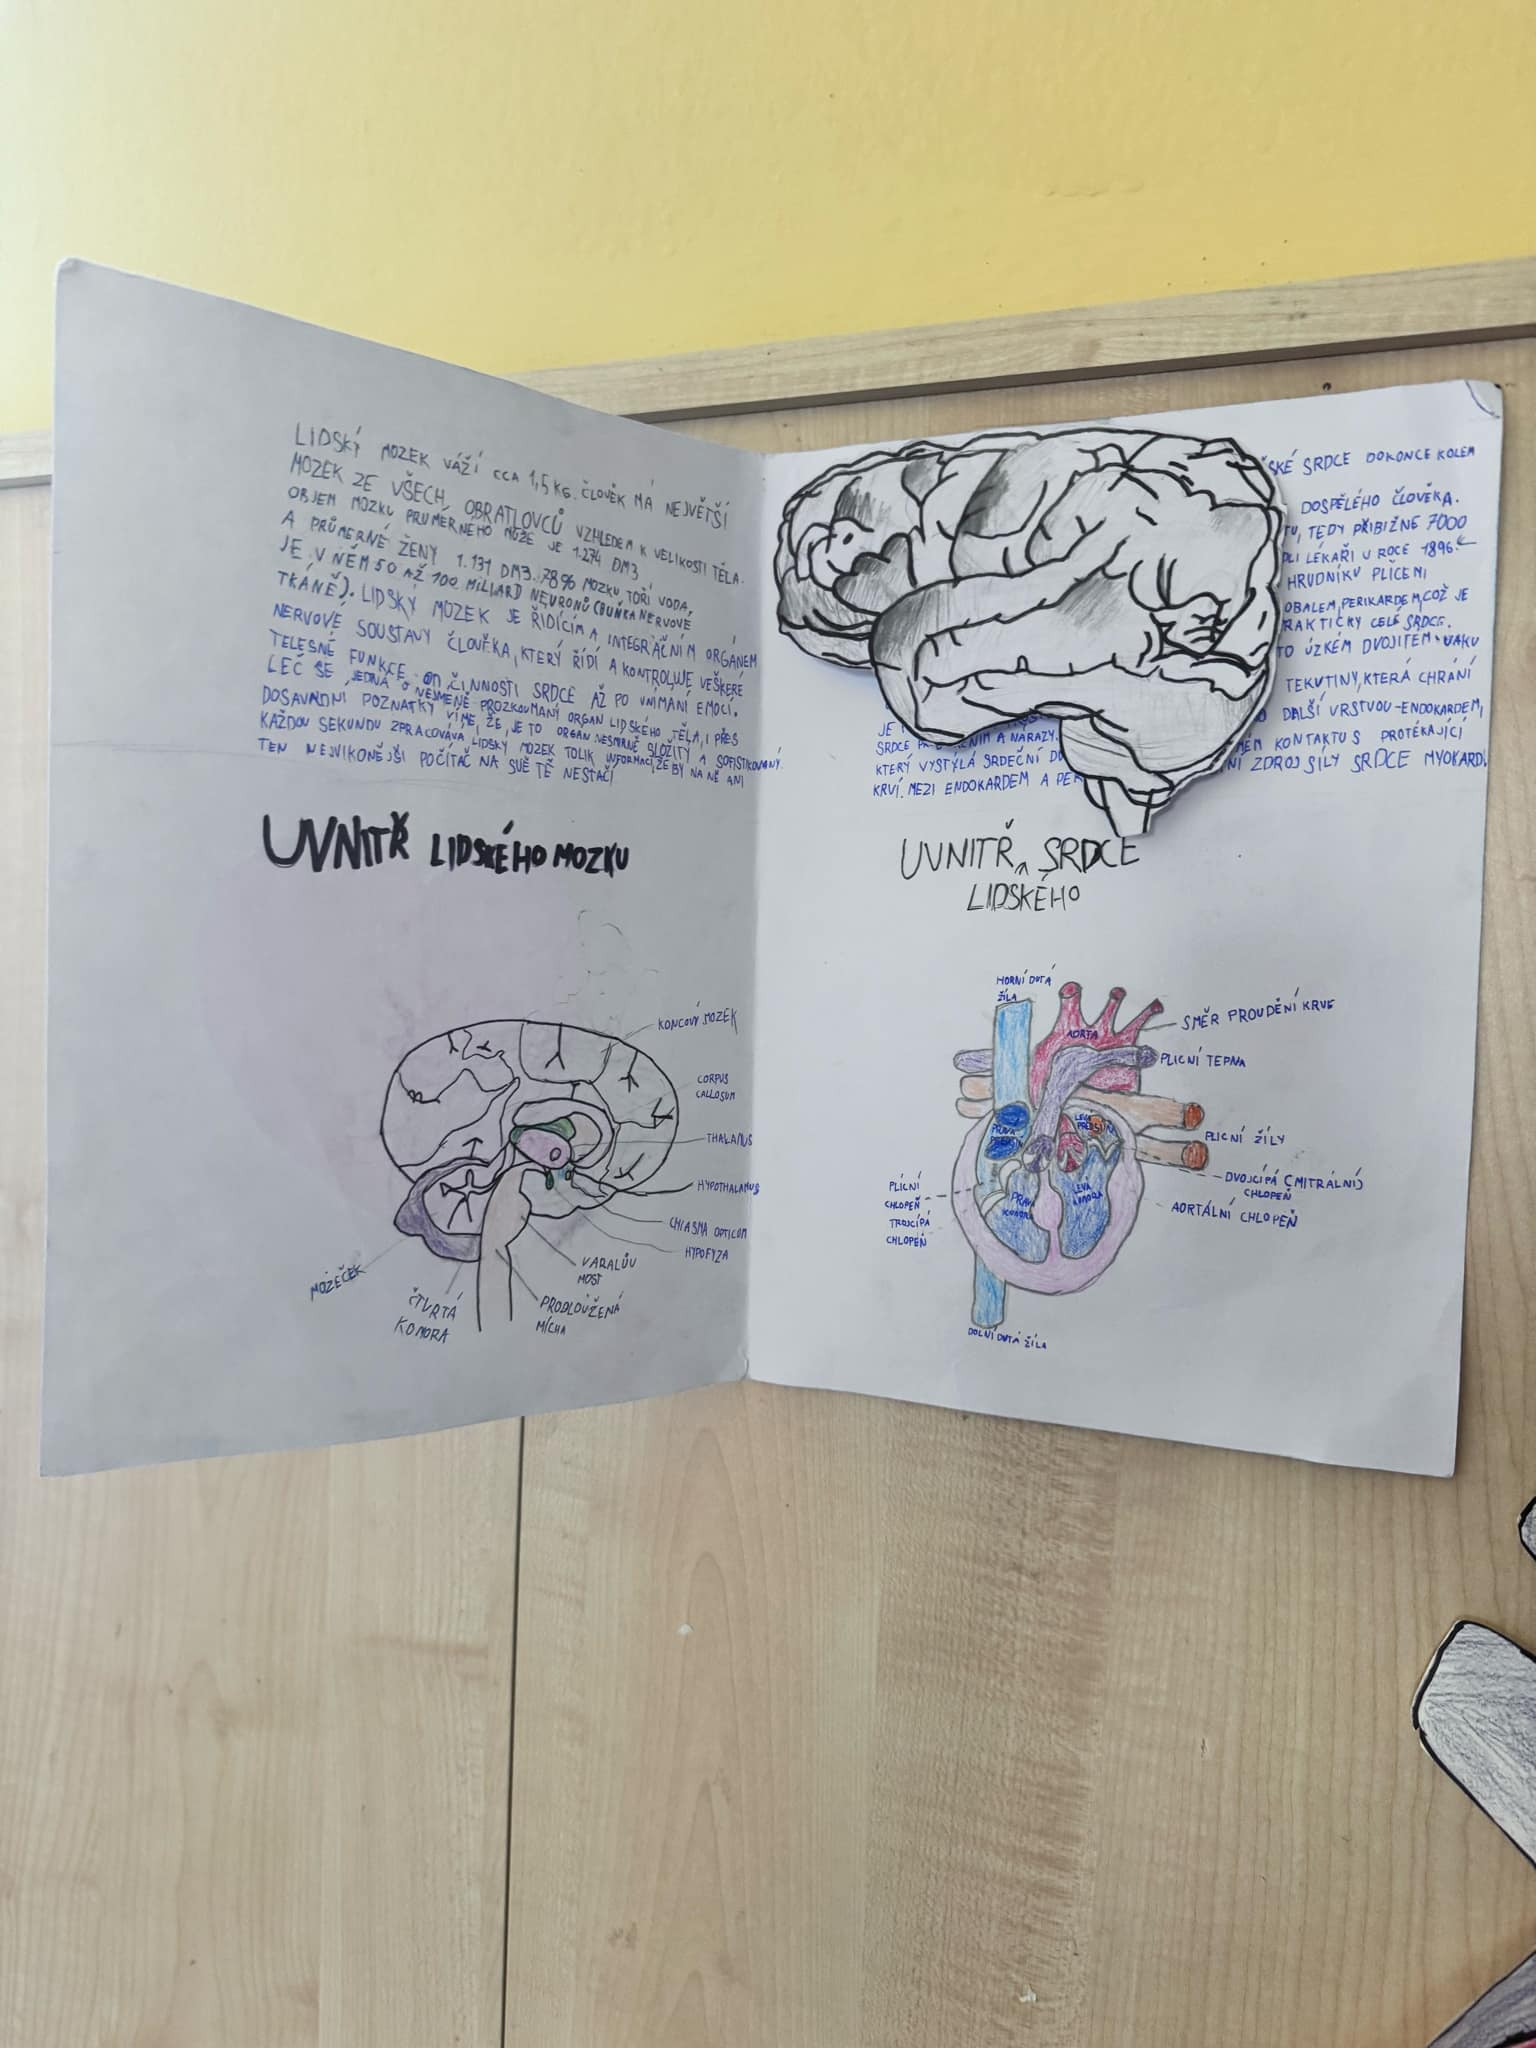 LIDSKÝ MOZEK VÁŽÍ CCA 1,5 KG. ČLOVĚK MÁ NEJVĚTŠÍ
MOZEK ZE VŠECH OBRATLOVCŮ VZHLEDEM K VELIKOSTI TĚLA.
OBJEM MOZKU PRŮMĚRNÉHO MUŽE JE 1.274 DM3
A PRŮMĚRNÉ ŽENY 1.131 DM3. 78% MOZKU TOŘI VODA,
JE V NĚM 50 AŽ 100 MILIARD NEURONŮ (BUŇKA NERVOVÉ
TKÁNĚ). LIDSKÝ MOZEK JE ŘIDÍCÍM A INTEGRAČNÍM ORGÁNEM
NERVOVÉ SOUSTAVY ČLOVĚKA, KTERÝ ŘÍDÍ A KONTROLUJE VEŠKERÉ
TELESNÉ FUNKCE OD ČINNOSTI SRDCE AŽ PO VNÍMÁNÍ EMOCÍ.
LEČ SE JEDNÁ O NEJMÉNĚ PROZKOUMANÝ ORGAN LIDSKÉHO TĚLA, I PŘES
DOSAVADNÍ POZNATKY VÍME, ŽE JE TO ORGAN NESMIRNĚ SLOŽITÝ A SOFISTIKOVANÝ.
KAŽDOU SEKUNDU ZPRACOVÁVÁ LIDSKÝ MOZEK TOLIK INFORMACÍ, ŽE BY NA NĚ ANI
TEN NEJVIKONĚJŠI POČÍTAČ NA SVĚTĚ NESTAČÍ
UVNITŘ LIDSKÉHO MOZKU
KONCOVÝ MOZEK
CORPUS
CALLOSUM
THALAMUS
HYPOTHALAMUS
CHIASMA OPTICUM
HYPOFYZA
VARALŮV
MOST
PRODLOUŽENÁ
MÍCHA
ČTVRTÁ
KOMORA
MOZEČEK
SRDCE DOKONCE KOLEM
DOSPĚLÉHO ČLOVĚKA.
TEDY PŘIBIŽNE 7000
LÉKAŘI V ROCE 1896.
HRUDNÍKU PLÍCEMI
OBALEM, PERIKARDEM, COŽ JE
CELÉ SRDCE.
ÚZKÉM DVOJITÉM VAKU
TEKUTINY, KTERÁ CHRÁNÍ
JE
DALŠÍ VRSTVOU-ENDOKARDEM,
SRDCE A NARAZY.
KTERÝ VYSTÝLÁ SRDEČNÍ KONTAKTU S PROTÉKAJÍCÍ
KRVÍ. MEZI ENDOKARDEM A ZDROJ SÍLY SRDCE MYOKARD.
UVNITŘ SRDCE
LIDSKÉHO
HORNÍ DUTÁ
ŽÍLA
AORTA
SMĚR PROUDĚNÍ KRVE
PLICNÍ TEPNA
PRAVÁ
LEVA
PLICNÍ ŽÍLY
DVOJCÍPÁ (MITRÁLNÍ)
CHLOPEŇ
AORTÁLNÍ CHLOPEŇ
PLICNÍ
CHLOPEŇ
TROJCÍPÁ
CHLOPEŇ
PRAVÁ
KOMORA
LEVA
KOMORA
DOLNÍ DUTÁ ŽÍLA